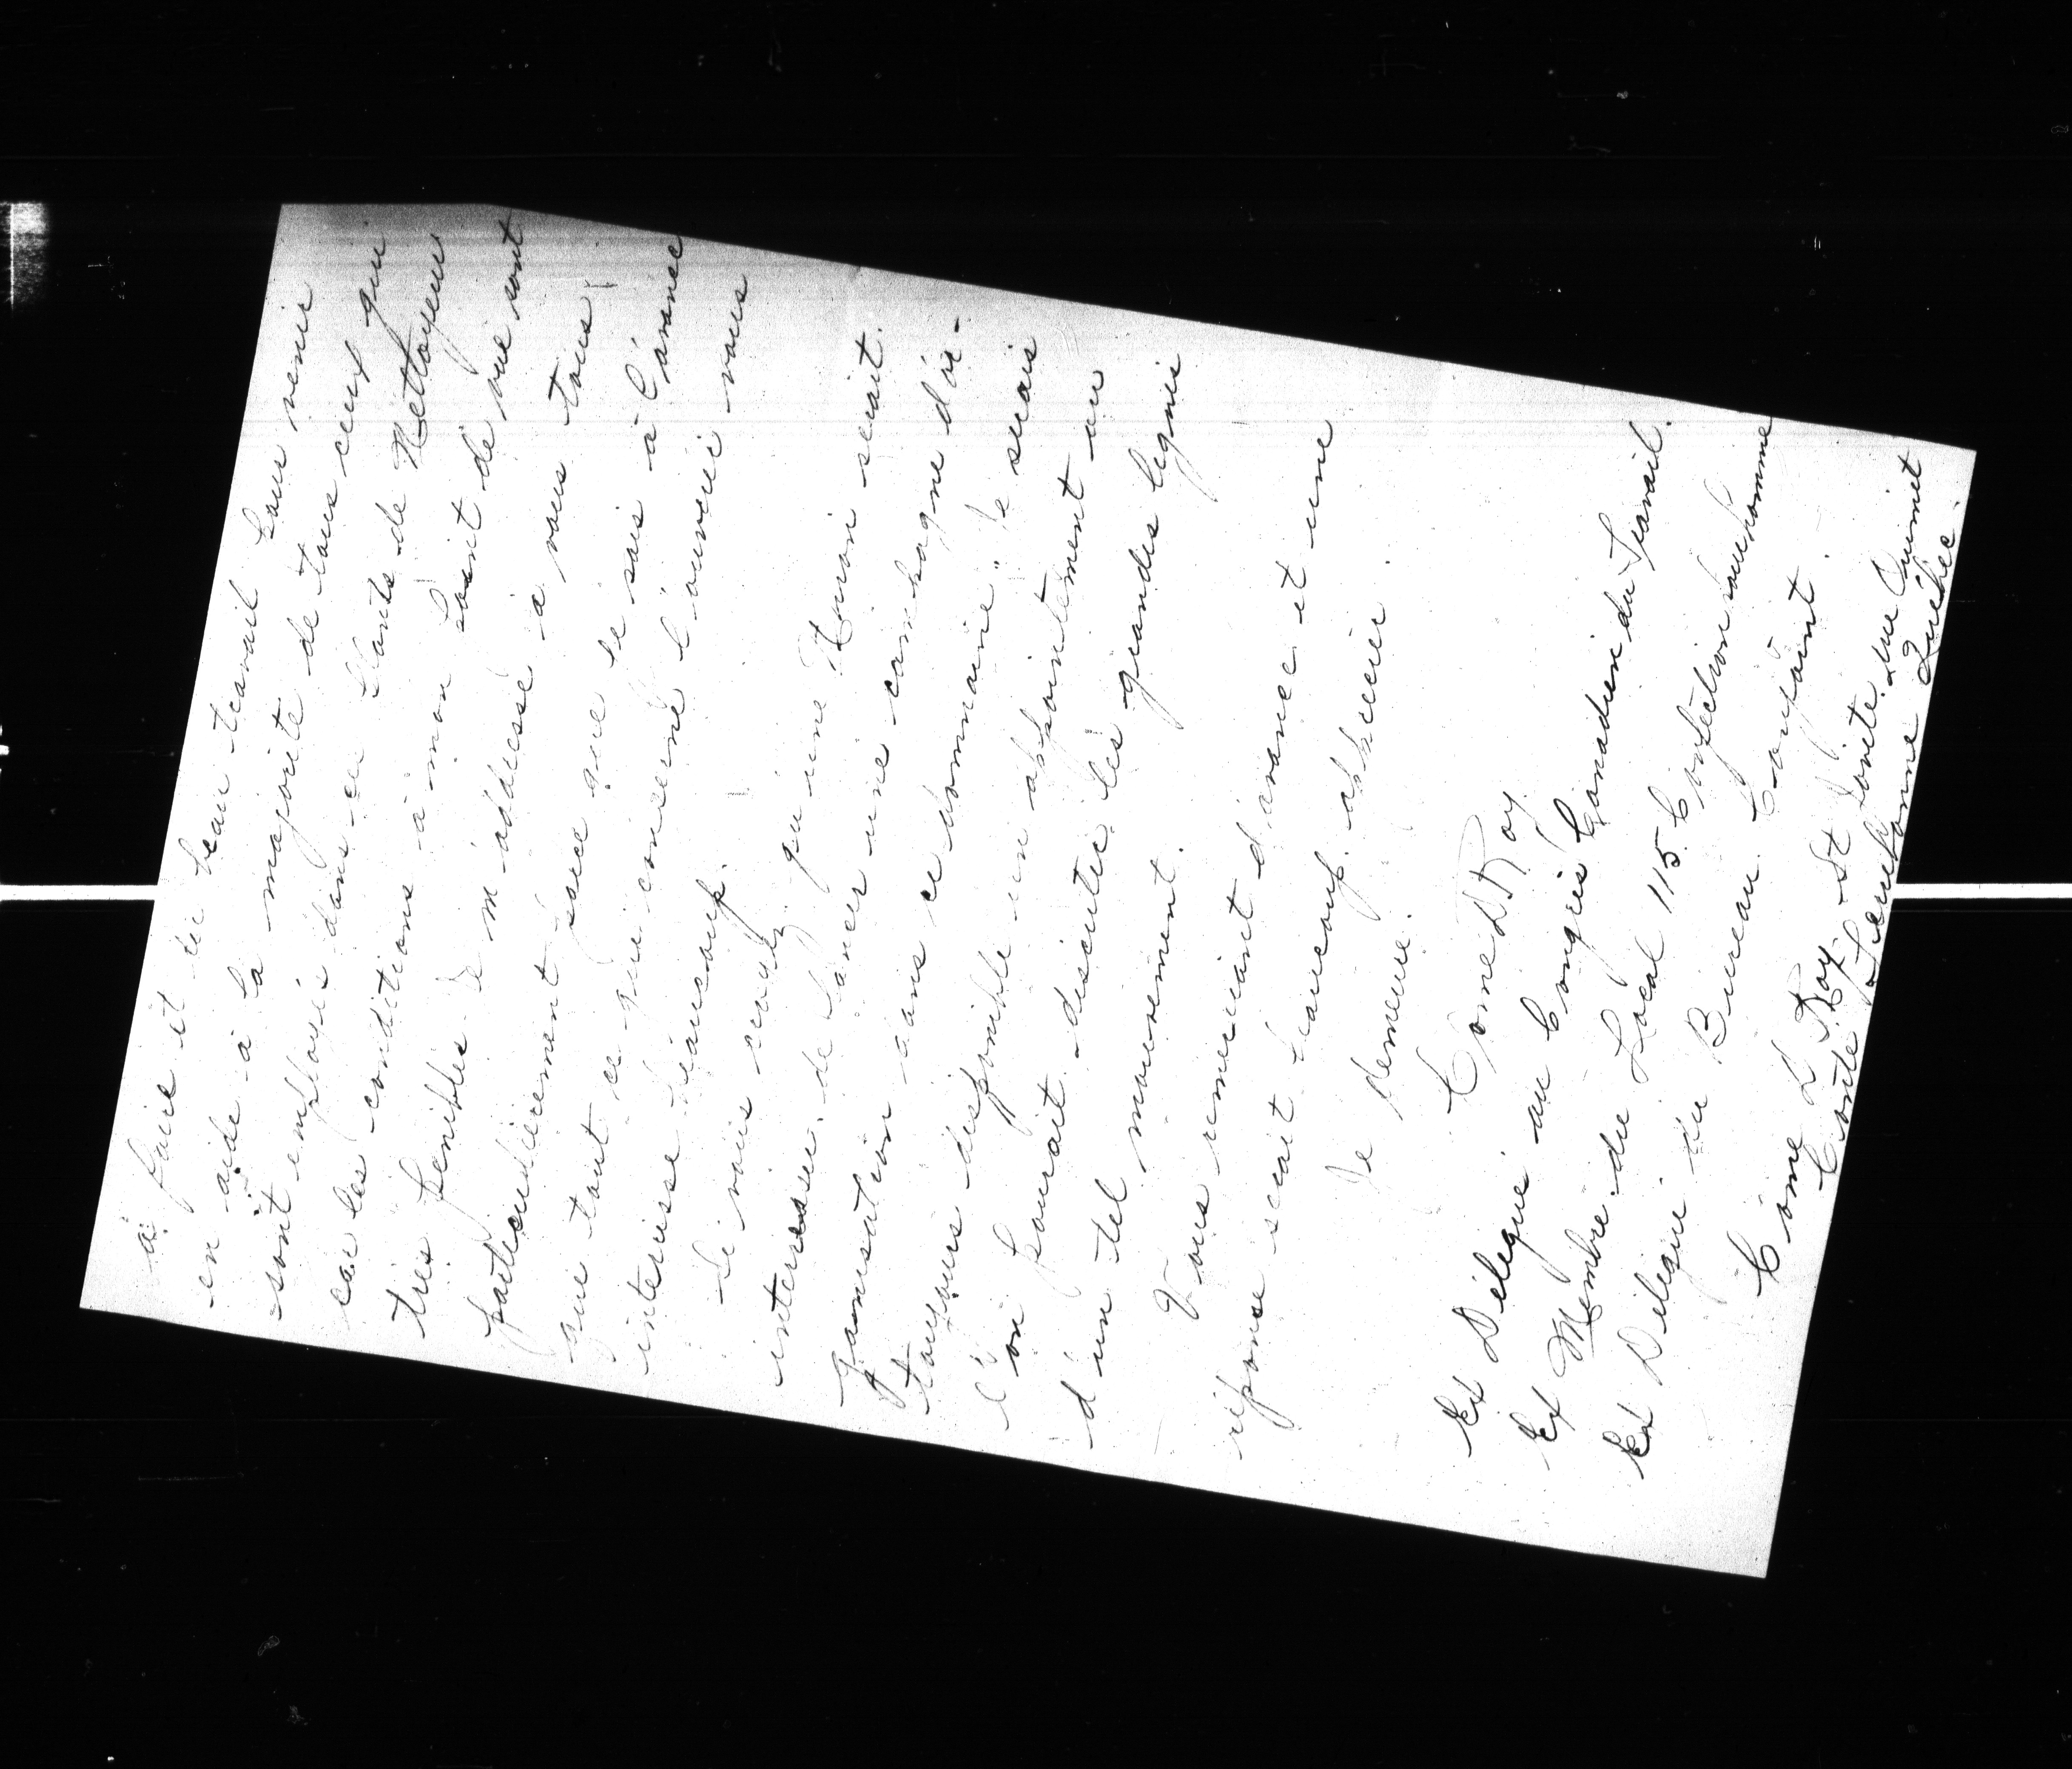 à faire et du beau travail pour venir
en aide à la majorité de tous ceux qui
sont employés dans ces Plants de Nettoyeur
car les conditions à mon point de vue sont
très penibles Je m'addresse à vous tous
particulièrement parce que je sais à l'avance
que tout ce qui concerne l'ouvrier vous
interesse beaucoup.
Si vous croyez qu'une Union serait
interessée de lancer une campagne d'or-
ganisation dans ce domaine, Je serais
toujours disponible un appointement ou
l'on pourait discuter les grandes lignes
d'un tel mouvement.
Vous remerciant d'avance et une
réponse serait beaucoup apprécier.
Je demeure.
Come D Roy
Ex Délégué au Congrès Canadien du Travail.
Ex Membre du Local 115 Confection pour homme
Ex Délégué du Bureau Conjoint.
Côme D Roy St Jovite Rue Ouimet
Comté Terrebonne Québec.